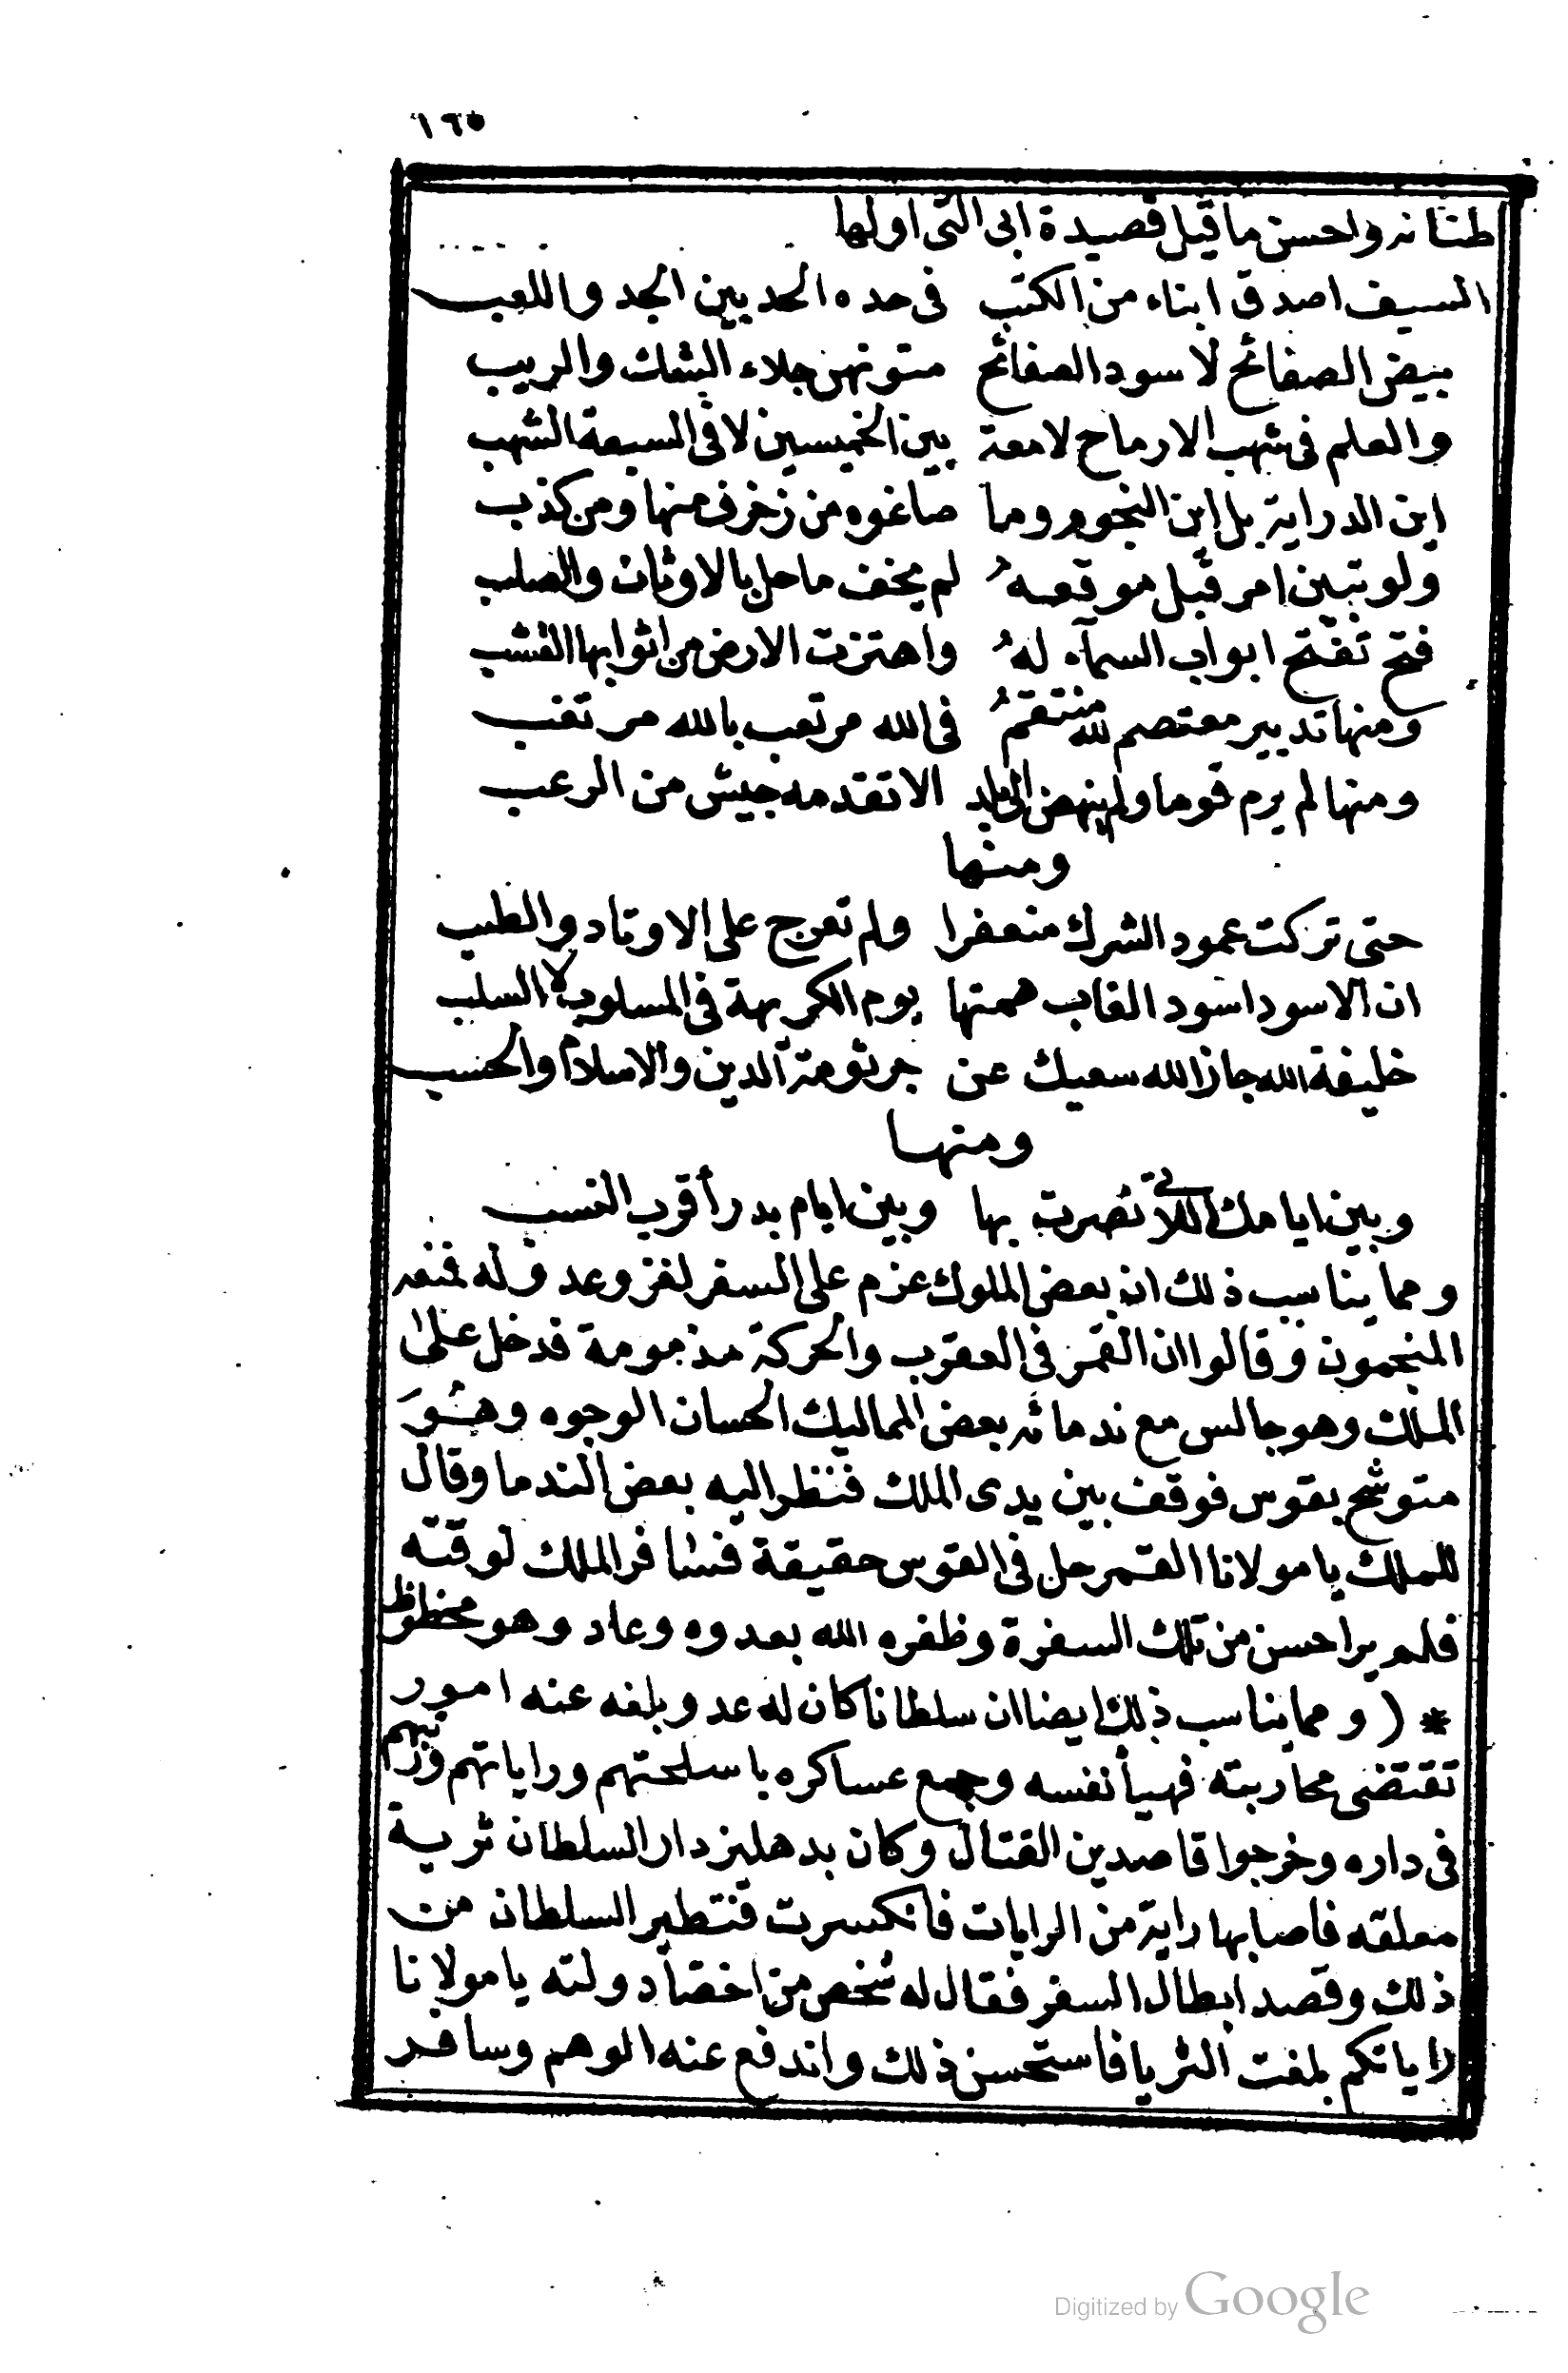 ١٦٥
طنانه واحسن ما قيل قصيدة ابى التى اولها
السيف اصدق ابناء من الكتب فى حده الحد بين الجد واللعب
بيض الصفائح لا سود الصفائح متونهن جلاء الشك والريب
والعلم فى شهب الارماح لامعة بين الخميسين لا فى السبعة الشهب
اين الدراية بل اين النجوم وما صاغوه من زخرف منها ومن كذب
ولو تبين امر قبل موقعهُ لم يخف ما حل بالاوثان والصلب
فتح تفتح ابواب السمآء لهُ واهتزت الارض من اثوابها القشب
ومنها تدبير معتصم لله منتقمُ فى الله مرتعب بالله مرتقب
ومنها لم يرم قوما ولم ينهض الى بلد الا تقدمه جيش من الرعب
ومنها
حتى تركت عمود الشرك منعفرا ولم تعرج على الاوتاد والطنب
ان الاسود اسود الغاب همتها يوم الكريهة فى المسلوب لا السلب
خليفة الله جاز الله سعيك عن جرثومة الدين والاسلام والحسب
ومنها
وبين ايامك اللاتى نصرت بها وبين ايام بدر أقرب النسب
ومما يناسب ذلك ان بعض الملوك عزم على السفر لغزو عدو له فمنعه
المنجمون وقالوا ان القمر فى العقرب والحركة مذمومة فدخل على
الملك وهو جالس مع ندمائه بعض المماليك الحسان الوجوه وهو
متوشح بقوس فوقف بين يدى الملك فنظر اليه بعض الندما وقال
للملك يا مولانا القمر حل فى القوس حقيقة فسافر الملك لوقته
فلم ير احسن من تلك السفرة وظفره الله بعدوه وعاد وهو محظوظ
* ( ومما يناسب ذلك ايضا ان سلطانا كان له عدو وبلغه عنه امور
تقتضى محاربته فهيأ نفسه وجمع عساكره باسلحتهم وراياتهم ورتبهم
فى داره وخرجوا قاصدين القتال وكان بدهليز دار السلطان ثرية
معلقه فاصابها راية من الرايات فانكسرت فتطير السلطان من
ذلك وقصد ابطال السفر فقال له شخص من اخصآ دولته يا مولانا
راياتكم بلغت الثريا فاستحسن ذلك واندفع عنه الوهم وسافر
Digitized by Google